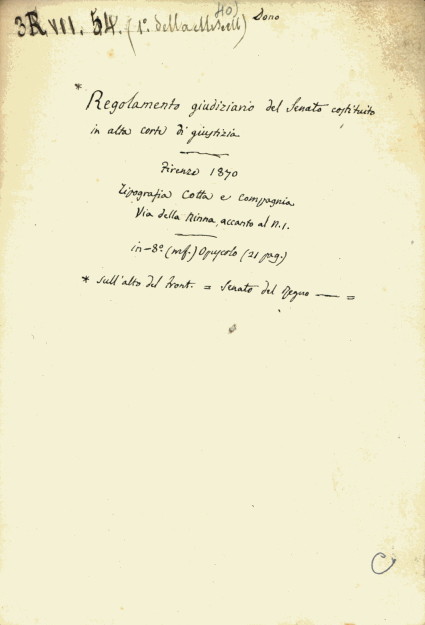 40)
3R VII. 54. (1º. della Miscell) Dono
* Regolamento giudiziario del Senato costituito
in alta corte di giustizia
Firenze 1870
Tipografia Cotta e Compagnia
Via della Ninna, accanto al N. 1.
in-8º. (mf.) Opuscolo (21 pag.)
* sull'alto del front. = Senato del Regno — =
C